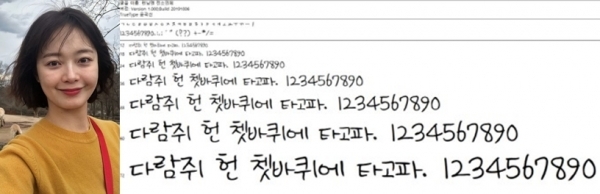 1234567890.:,;'"(?!) +-*/=
다람쥐 헌 쳇바퀴에 타고파. 1234567890
다람쥐 헌 쳇바퀴에 타고파. 1234567890
다람쥐 헌 쳇바퀴에 타고파. 1234567890
다람쥐 헌 쳇바퀴에 타고파. 1234567890
다람쥐 헌 쳇바퀴에 타고파. 1234567890
다람쥐 헌 쳇바퀴에 타고파. 1234567890